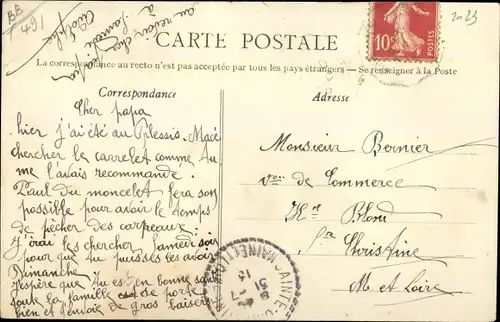 BB
491
2023
au revoir cher papa
à Samedi
CARTE POSTALE
10c
POSTES
La correspondance au recto n'est pas acceptée par tous les pays étrangers — Se renseigner à la Poste
Correspondance
Cher papa
hier j'ai été au Plessis. Macé
chercher le carrelet comme tu
me l'avais recommandé.
Paul du moncelet fera son
possible pour avoir le temps
de pêcher des carpeaux.
J'irai les chercher Samedi soir
pour que tu puisses les avoir
Dimanche
J'espère que tu est en bonne santé
toute la famille se porte
bien et t'envoie de gros baisers
Adresse
Monsieur Bernier
de Commerce
Hel Blond
Ste Christine
M et Loire
SAINTE-
MAINE ET LOIRE